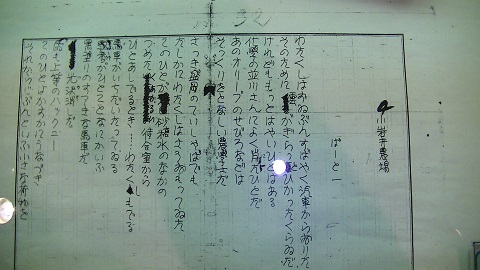 小岩井農場
ぱーと一
わたくしはずゐぶんすばやく汽車からおりた
そのために雲がぎらっとひかったくらゐだ
けれどももっとはやいひとはある
化学の並川さんによく肖たひとだ
あのオリーブのせびろなどは
そっくりをとなしい農学士だ
さっき盛岡のていしゃばでも
たしかにわたくしはさうおもってゐた
このひとが砂糖水のなかの
つめたい待合室から
ひとあしでるとき……わたくしもでる
馬車がいちだいたってゐる
馭者がひとことなにかいふ
黒塗りのすてきな馬車だ
光沢消しだ
馬も上等のハックニー
このひとはかすかにうなづき
それからじぶんといふ小さな荷物を